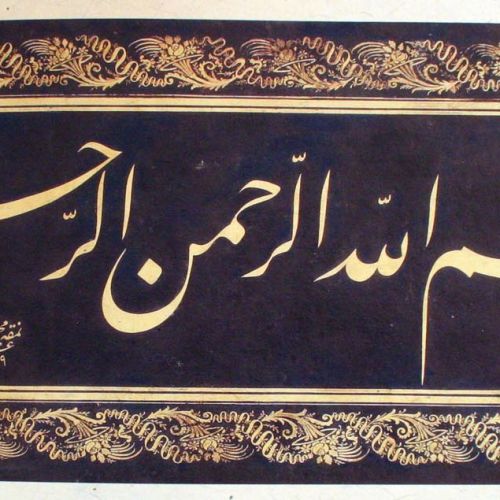 م الله الرحمن الرح